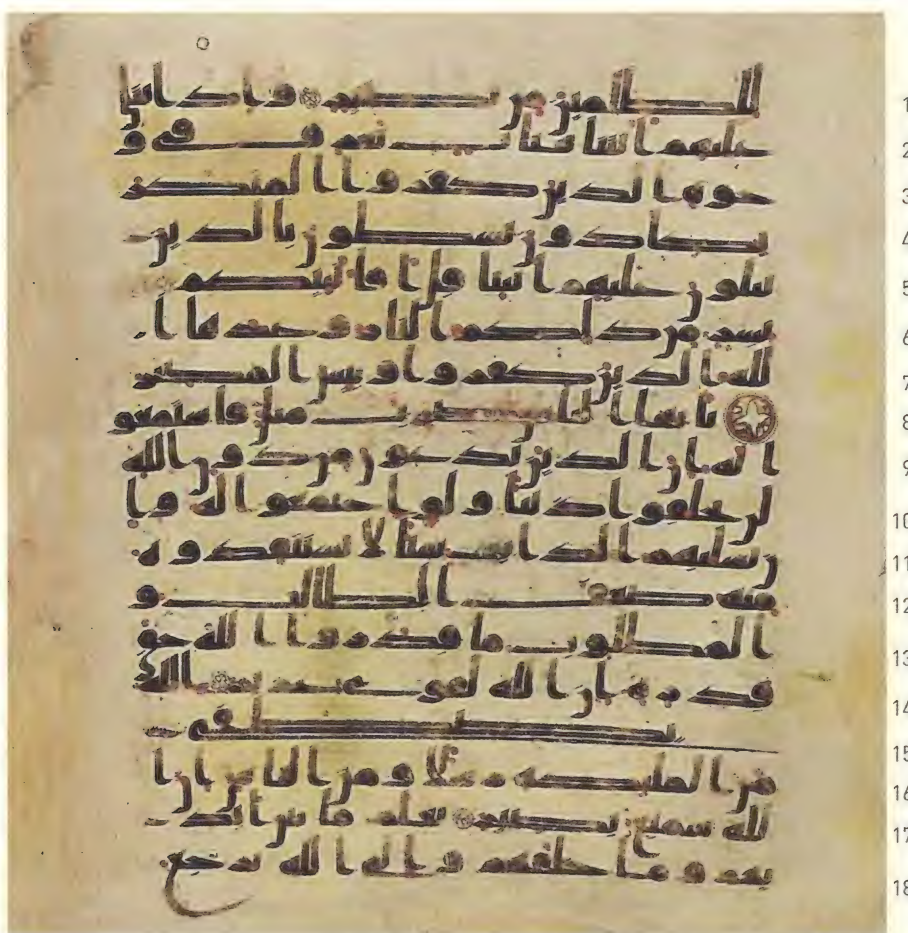 1 للظلمين من نصير وإذا تتلى
2 عليهم ايتنا بينت تعرف في و
3 جوه الذين كفروا المنكر
4 يكادون يسطون بالذين
5 يتلون عليهم ايتنا قل افانبئكم
6 بشر من ذلكم النار وعدها ا
7 لله الذين كفروا وبئس المصير
8 يايها الناس ضرب مثل فاستمعوا
9 له ان الذين تدعون من دون الله
10 لن يخلقوا ذبابا ولو اجتمعوا له وا
11 ن يسلبهم الذباب شيئا لا يستنقذوه
12 منه ضعف الطالب و
13 المطلوب ما قدروا الله حق
14 قدره ان الله لقوي عزيز الله
15 يصطفي
16 من الملئكة رسلا ومن الناس ان ا
17 لله سميع بصير يعلم ما بين ايد
18 يهم وما خلفهم والى الله ترجع